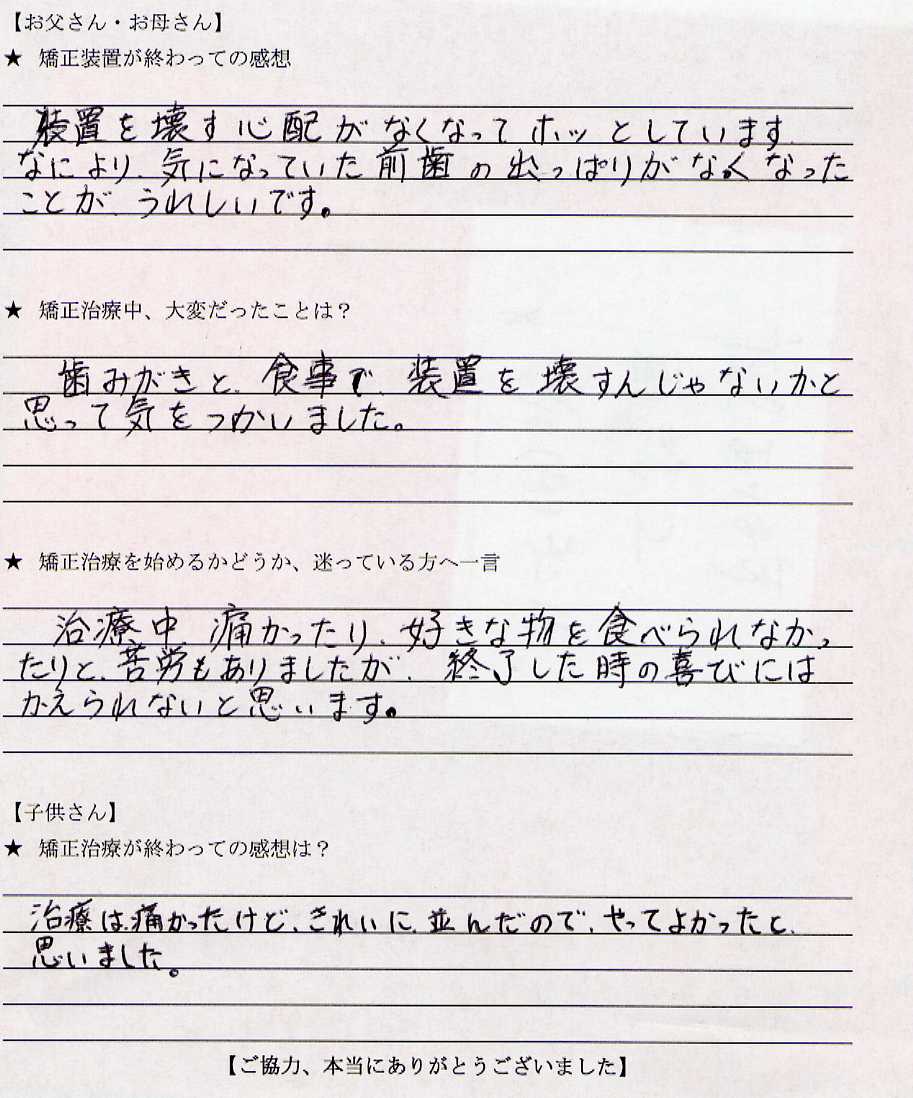 【お父さん・お母さん】
★ 矯正装置が終わっての感想
装置を壊す心配がなくなってホッとしています.
なにより、気になっていた前歯の出っぱりがなくなった
ことが、うれしいです。
★ 矯正治療中、大変だったことは？
歯みがきと、食事で、装置を壊すんじゃないかと
思って気をつかいました。
★ 矯正治療を始めるかどうか、迷っている方へ一言
治療中、痛かったり、好きな物を食べられなかっ
たりと、苦労もありましたが、終了した時の喜びには
かえられないと思います。
【子供さん】
★ 矯正治療が終わっての感想は？
治療は、痛かったけど、きれいに、並んだので、やってよかったと、
思いました。
【ご協力、本当にありがとうございました】